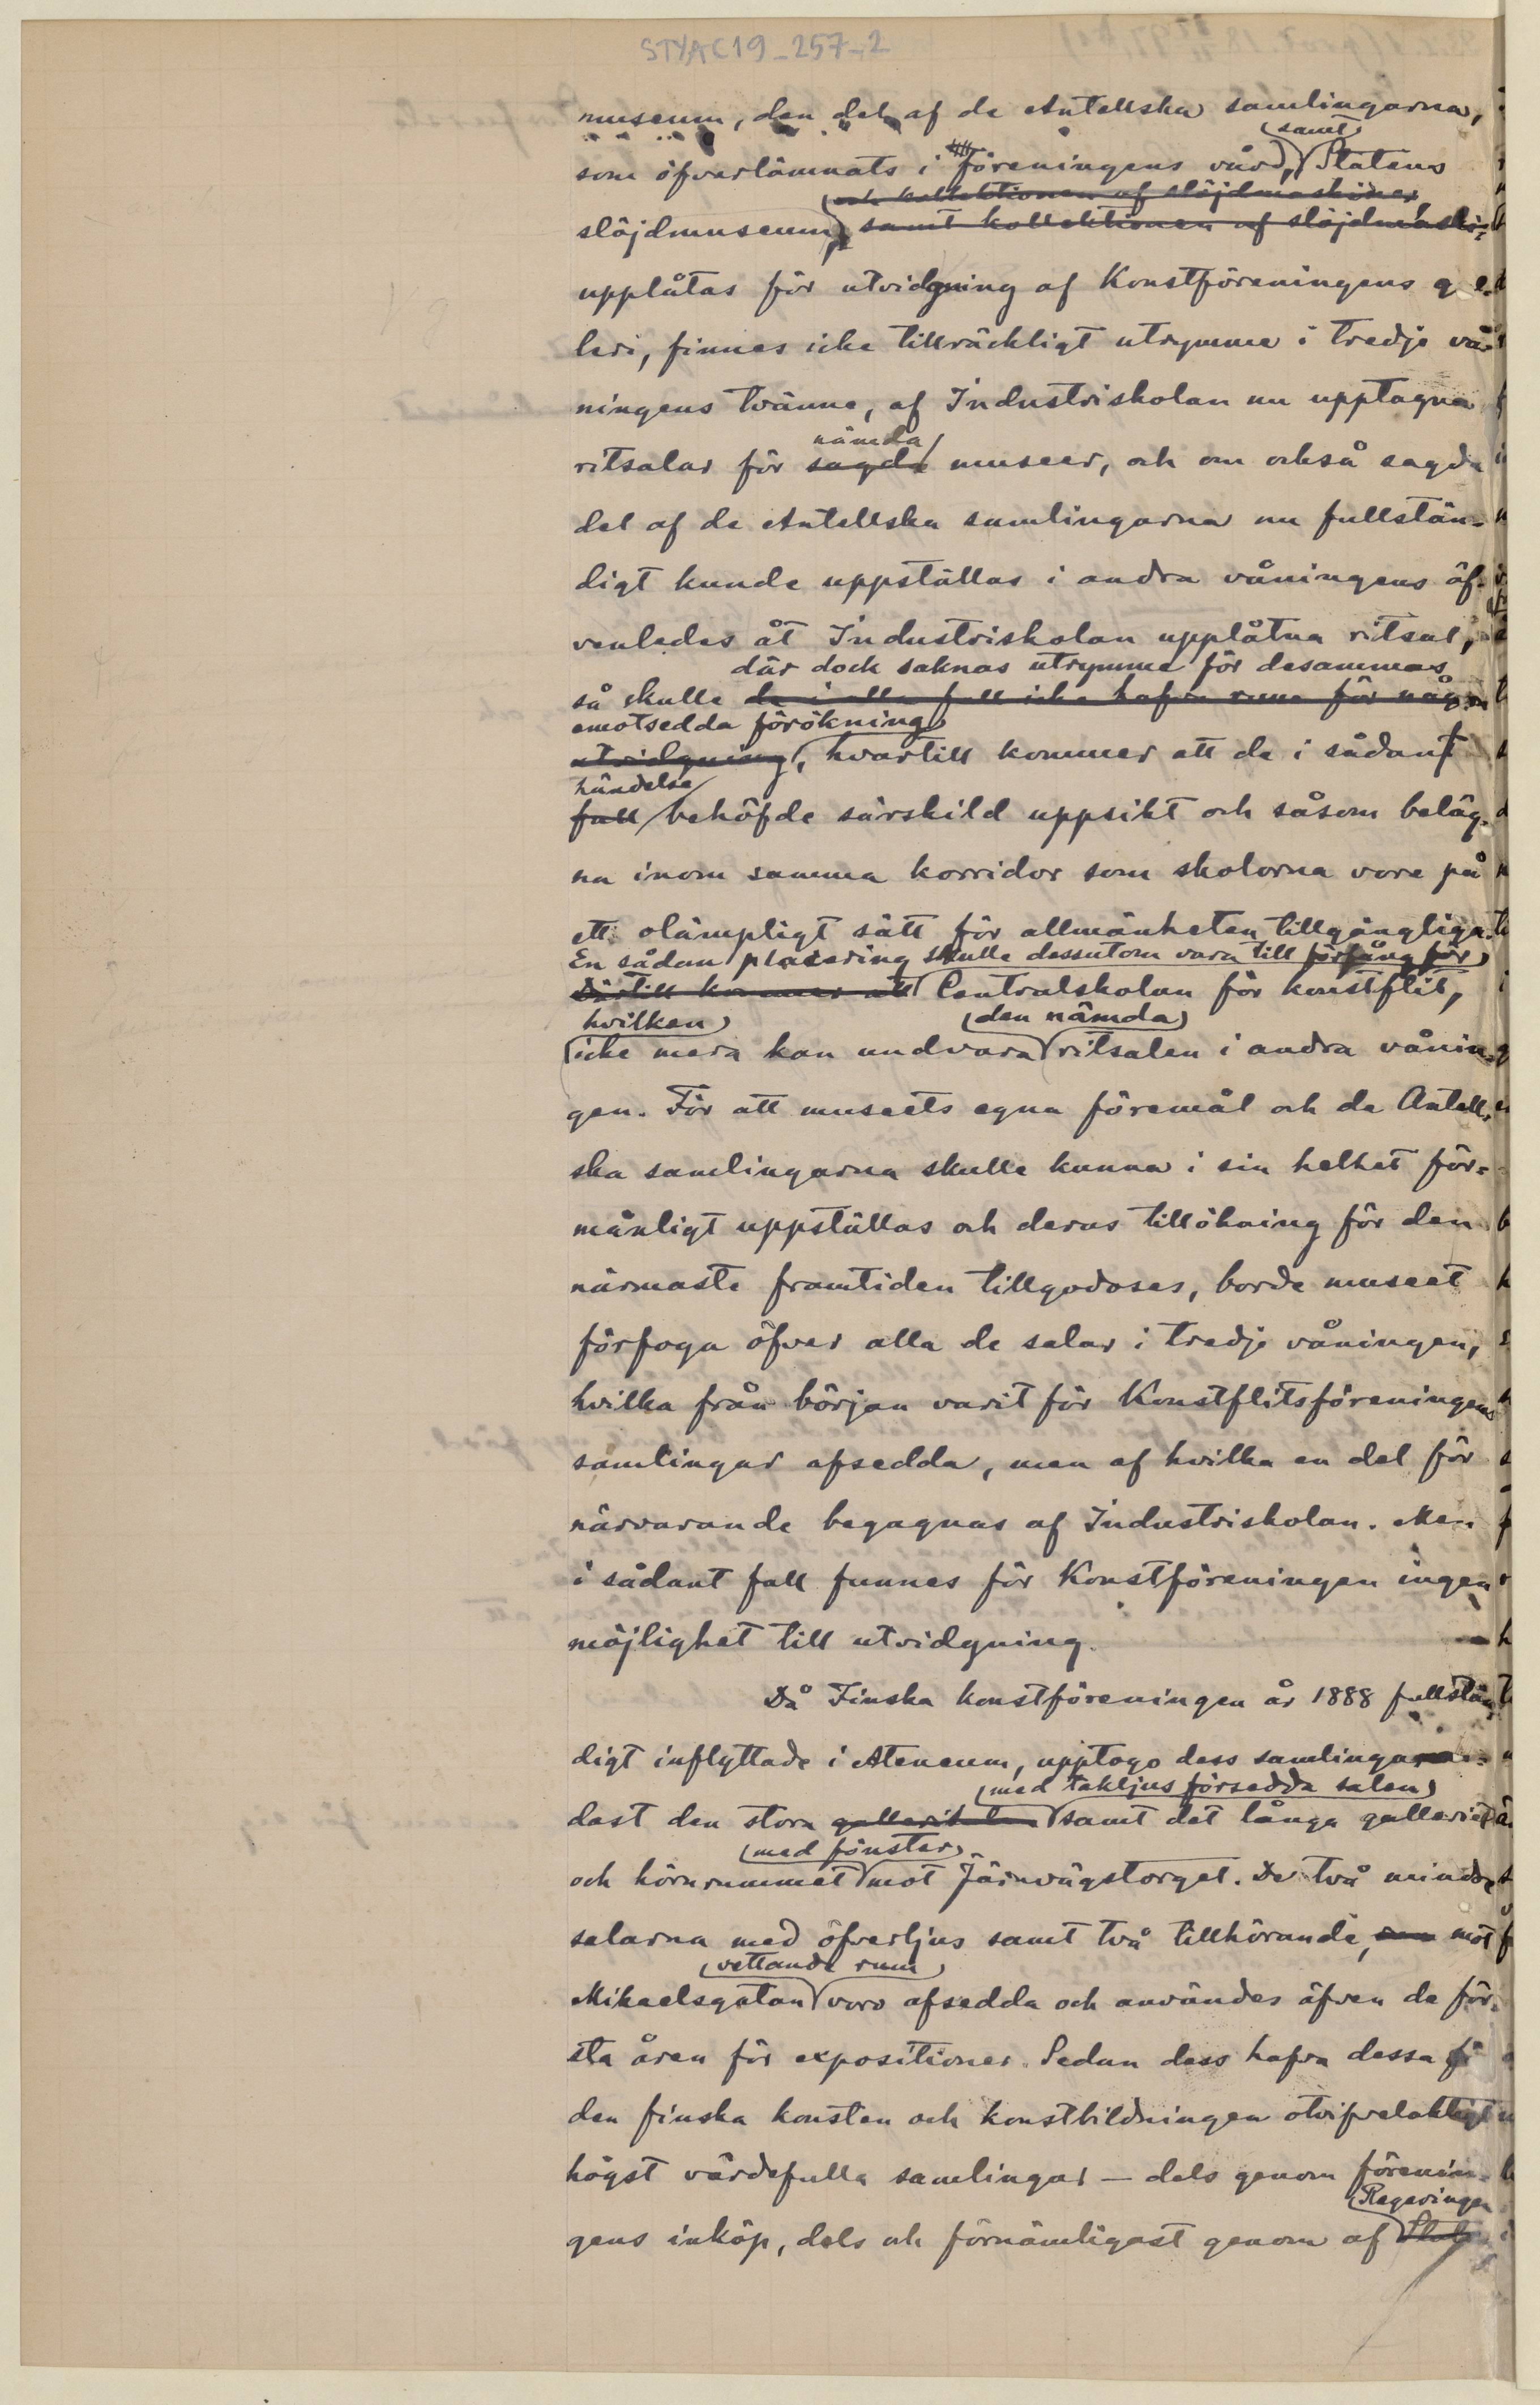 STYAC19_257_2
museum, den del af de Antellska samlingarna,
samt
som öfverlämnats i föreningens vård, Statens
och kollektionen af slöjdmaskiner,
slöjdmuseum, samt kollektionen af slöjdmaski=
upplåtas för utvidgning af Konstföreningens gal-
leri, finnes icke tillräckligt utrymme i tredje vå-
ningens tvänne, af Industriskolan nu upptagna
nämda
ritsalar för sagda museer, och om också sagda
del af de Antellska samlingarna nu fullstän=
digt kunde uppställas i andra våningens äf-
venledes åt Industriskolan upplåtna ritsal,
där dock saknas utrymme för desammas
så skulle de i alla fall icke hafva rum för någon
emotsedda förökning
utvidgning, hvartill kommer att de i sådant
händelse
fall behöfde särskild uppsikt och såsom beläg-
na inom samma korridor som skolorna vore på
ett olämpligt sätt för allmänheten tillgängliga.
En sådan placering skulle dessutom vara till förfång för
Därtill kommer att Centralskolan för konstflit,
hvilken (den nämda)
icke mera kan undvara ritsalen i andra vånin-
gen. För att museets egna föremål och de Antell-
ska samlingarna skulle kunna i sin helhet för=
månligt uppställas och deras tillökning för den
närmaste framtiden tillgodoses, borde museet
förfoga öfver alla de salar i tredje våningen,
hvilka från början varit för Konstflitsföreningens
samlingar afsedda, men af hvilka en del för
närvarande begagnas af Industriskolan. Men
i sådant fall funnes för Konstföreningen ingen
möjlighet till utvidgning.
Då Finska Konstföreningen år 1888 fullstän-
digt inflyttade i Ateneum, upptogo dess samlingar en-
med takljus försedda salen
dast den stora gallerisalen samt det långa galleriet
med fönster
och hörnrummet mot Järnvägstorget. De två mindre
salarna med öfverljus samt två tillhörande, mot
vettande rum
Mikaelsgatan voro afsedda och användes äfven de för-
sta åren för expositioner. Sedan dess hafva dessa för
den finska konsten och konstbildningen otvifvelaktigt
högst värdefulla samlingar — dels genom förenin-
Regeringen
gens inköp, dels och förnämligast genom af